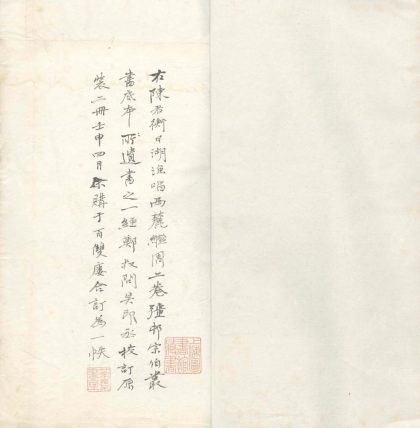 右陳君衡日湖漁唱西麓繼周二卷彊邨宗伯叢
書底本所遺書之一經鄭叔問吳印丞校訂原
裝二冊壬申四月余購于百雙廔合訂為一帙
上海圖書館藏書